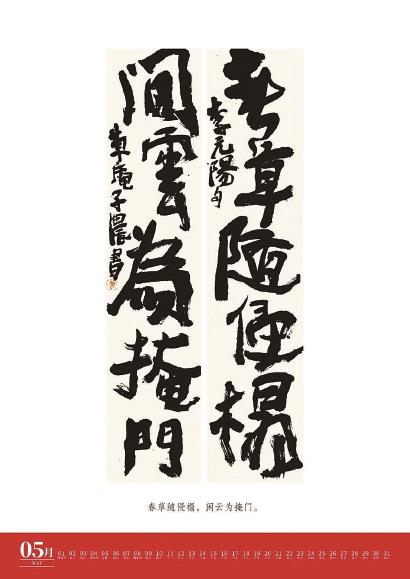 春草随侵榻
李元陽句
間雲為掩門
春草随侵榻，闲云为掩门。
05月 01 02 03 04 05 06 07 08 09 10 11 12 13 14 15 16 17 18 19 20 21 22 23 24 25 26 27 28 29 30 31
MAY